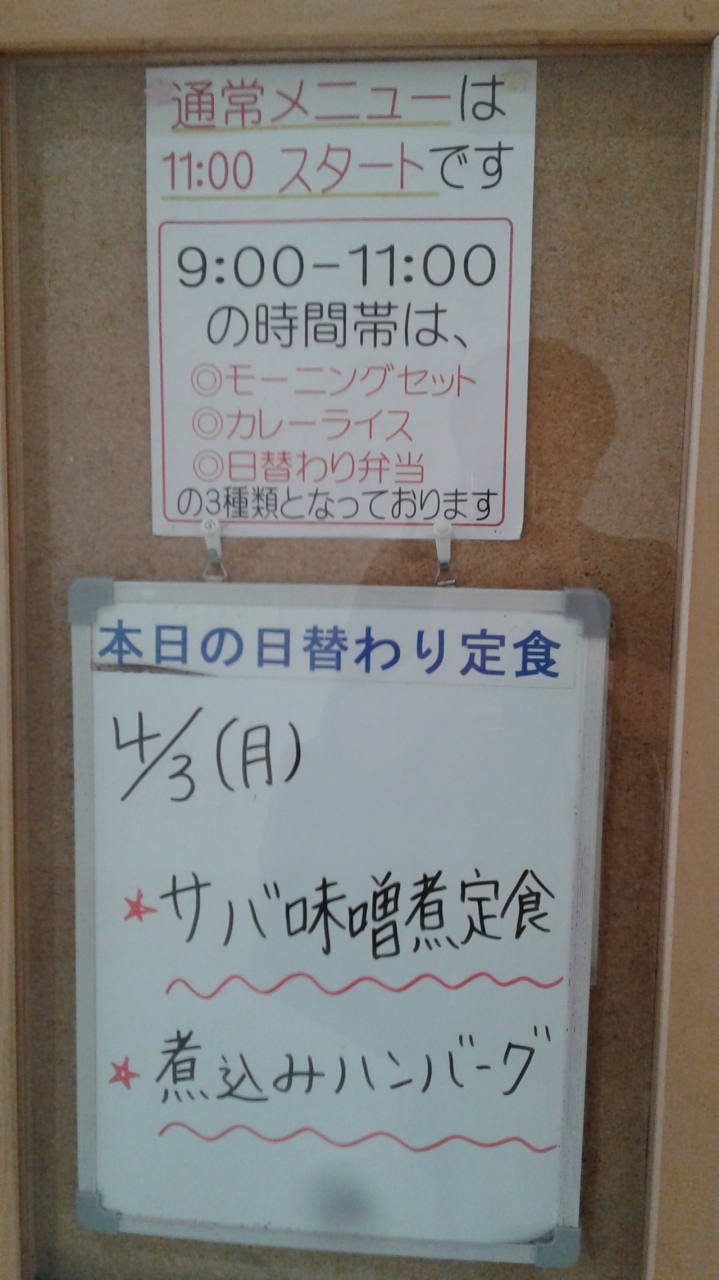 通常メニューは
11:00 スタートです
9:00−11:00
の時間帯は、
◎モーニングセット
◎カレーライス
◎日替わり弁当
の3種類となっております
本日の日替わり定食
4/3(月)
★サバ味噌煮定食
★煮込みハンバーグ